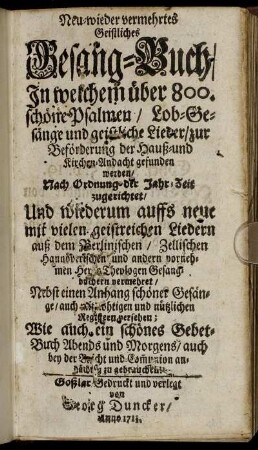 Neu-wieder vermehrtes
Geistliches
Gesang-Buch/
In welchem über 800.
schöne Psalmen / Lob-Ge-
sänge und geistliche Lieder/zur
Beförderung der Hauß-und
Kirchen-Andacht gefunden
werden/
Nach Ordnung der Jahr-Zeit
zugerichtet/
Und wiederum auffs neue
mit vielen geistreichen Liedern
auß dem Berlinischen / Zellischen
Hannöverischen und andern vorneh-
men Theologen Gesang-
büchern vermehret /
Nebst einen Anhang schöner Gesän-
ge/ auch nöhtigen und nützlichen
Registern versehen;
Wie auch ein schönes Gebet-
Buch Abends und Morgens/ auch
bey der Beicht und Communion an-
dächtig zu gebrauchen.
Goßlar/Gedruckt und verlegt
von
Georg Duncker/
Anno